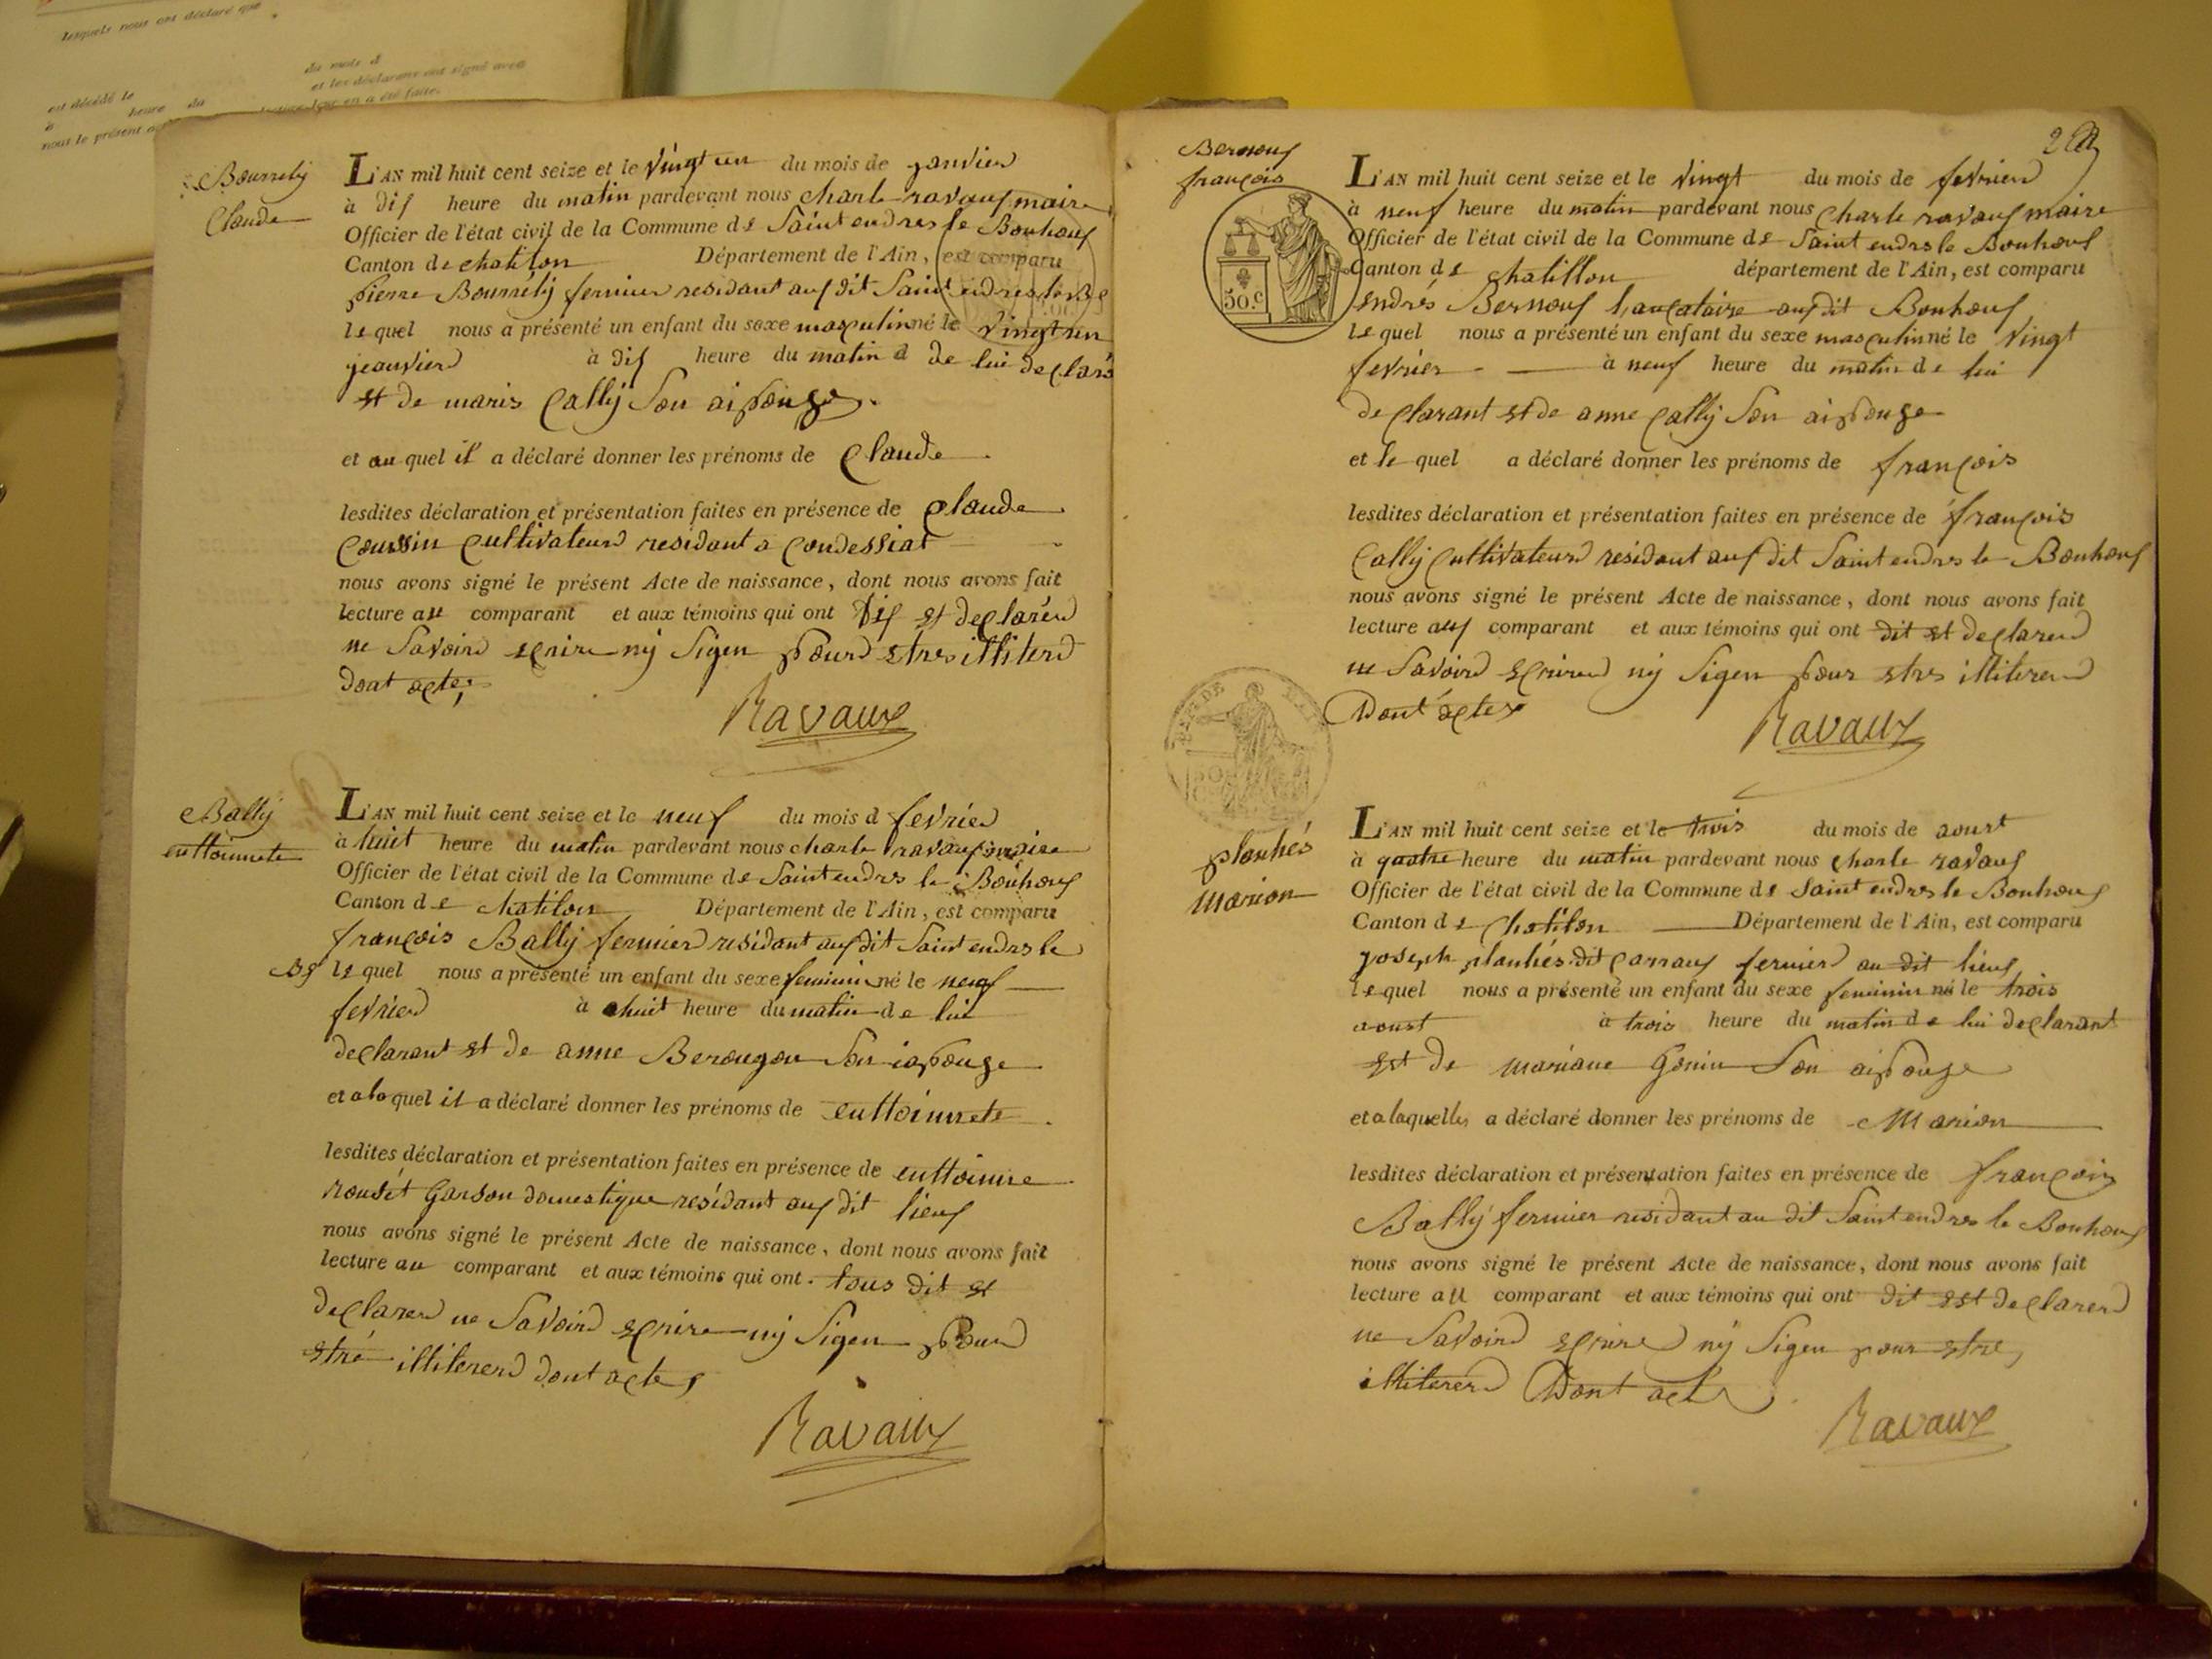 lesquels nous ont déclaré que
du mois d
et les déclarans ont signé avec
est décédé le
à heure du
lecture leur en a été faite.
Bourrelij
Claude
L'AN mil huit cent seize et le vingt un du mois de janvier
à dis heure du matin pardevant nous charle ravaux maire
Officier de l'état civil de la Commune de Saint endres le Bouhoux
Canton de chatilon Département de l'Ain, est comparu
pierre Bourrelij fermier residant aux dit Saint endres le B
le quel nous a présenté un enfant du sexe masculin né le vingt un
jeanvier à dis heure du matin d de lui declara
et de marie Cally son aipouze
et au quel il a déclaré donner les prénoms de Claude
lesdites déclaration et présentation faites en présence de Claude
Coussin Cultivateur residant a Condessiat
nous avons signé le présent Acte de naissance, dont nous avons fait
lecture au comparant et aux témoins qui ont dis et declarer
ne savoir ecrire ny signer pour etre illiterer
dont acte
Ravaux
Bally
enttoinnete
L'AN mil huit cent seize et le neuf du mois d fevrier
à huit heure du matin pardevant nous charle ravaux maire
Officier de l'état civil de la Commune de Saint endres le Bouhoux
Canton de chatilon Département de l'Ain, est comparu
françois Bally fermier residant aux dit Saint endres le
Bx le quel nous a présenté un enfant du sexe feminin né le neuf
fevrier à huit heure du matin de lui
declarant et de anne Berougou son iapouze
et a la quel il a déclaré donner les prénoms de enttoinnete
lesdites déclaration et présentation faites en présence de enttoinne
rouset Garson domestique residant aux dit lieux
nous avons signé le présent Acte de naissance, dont nous avons fait
lecture au comparant et aux témoins qui ont tous dit et
declarer ne savoir ecrire ny signer pour
etre illiterer dont acte
Ravaux
2
Bernoux
françois
L'AN mil huit cent seize et le vingt du mois de fevrier
à neuf heure du matin pardevant nous Charle ravaux maire
Officier de l'état civil de la Commune de Saint endre le Bouhoux
50.c
Canton de chatillon département de l'Ain, est comparu
endrés Bernoux laucataire aux dit Bouhoux
le quel nous a présenté un enfant du sexe masculin né le vingt
fevrier à neuf heure du matin de lui
declarant et de anne Cally son aipouze
et le quel a déclaré donner les prénoms de françois
lesdites déclaration et présentation faites en présence de françois
Cally Cultivateur residant aux dit Saint endres le Bouhoux
nous avons signé le présent Acte de naissance, dont nous avons fait
lecture aux comparant et aux témoins qui ont dit et declarer
ne savoir ecrirer ny signer pour etre illiterer
Dont acte
Ravaux
planhés
Marion
L'AN mil huit cent seize et le trois du mois de aoust
à quatre heure du matin pardevant nous charle ravaux
Officier de l'état civil de la Commune de Saint endres le Bouhoux
Canton de Chatilon Département de l'Ain, est comparu
joseph planhés dit Carraux fermier au dit lieux
le quel nous a présenté un enfant du sexe feminin né le trois
aoust à trois heure du matin de lui declarant
est de mariane Gonin son aipouze
et a laquelles a déclaré donner les prénoms de Marion
lesdites déclaration et présentation faites en présence de françois
Bally fermier residant au dit Saint endres le Bouhoux
nous avons signé le présent Acte de naissance, dont nous avons fait
lecture au comparant et aux témoins qui ont dit est declarer
ne savoir ecrire ny signer pour etre
illiterer Dont acte
Ravaux